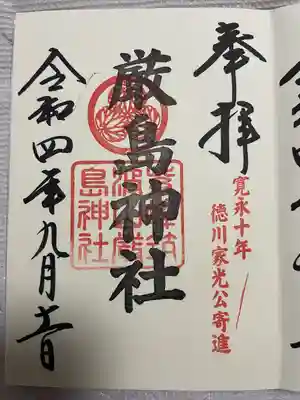 奉拝
寛永十年
徳川家光公寄進
厳島神社
島神社
令和四年九月十一日